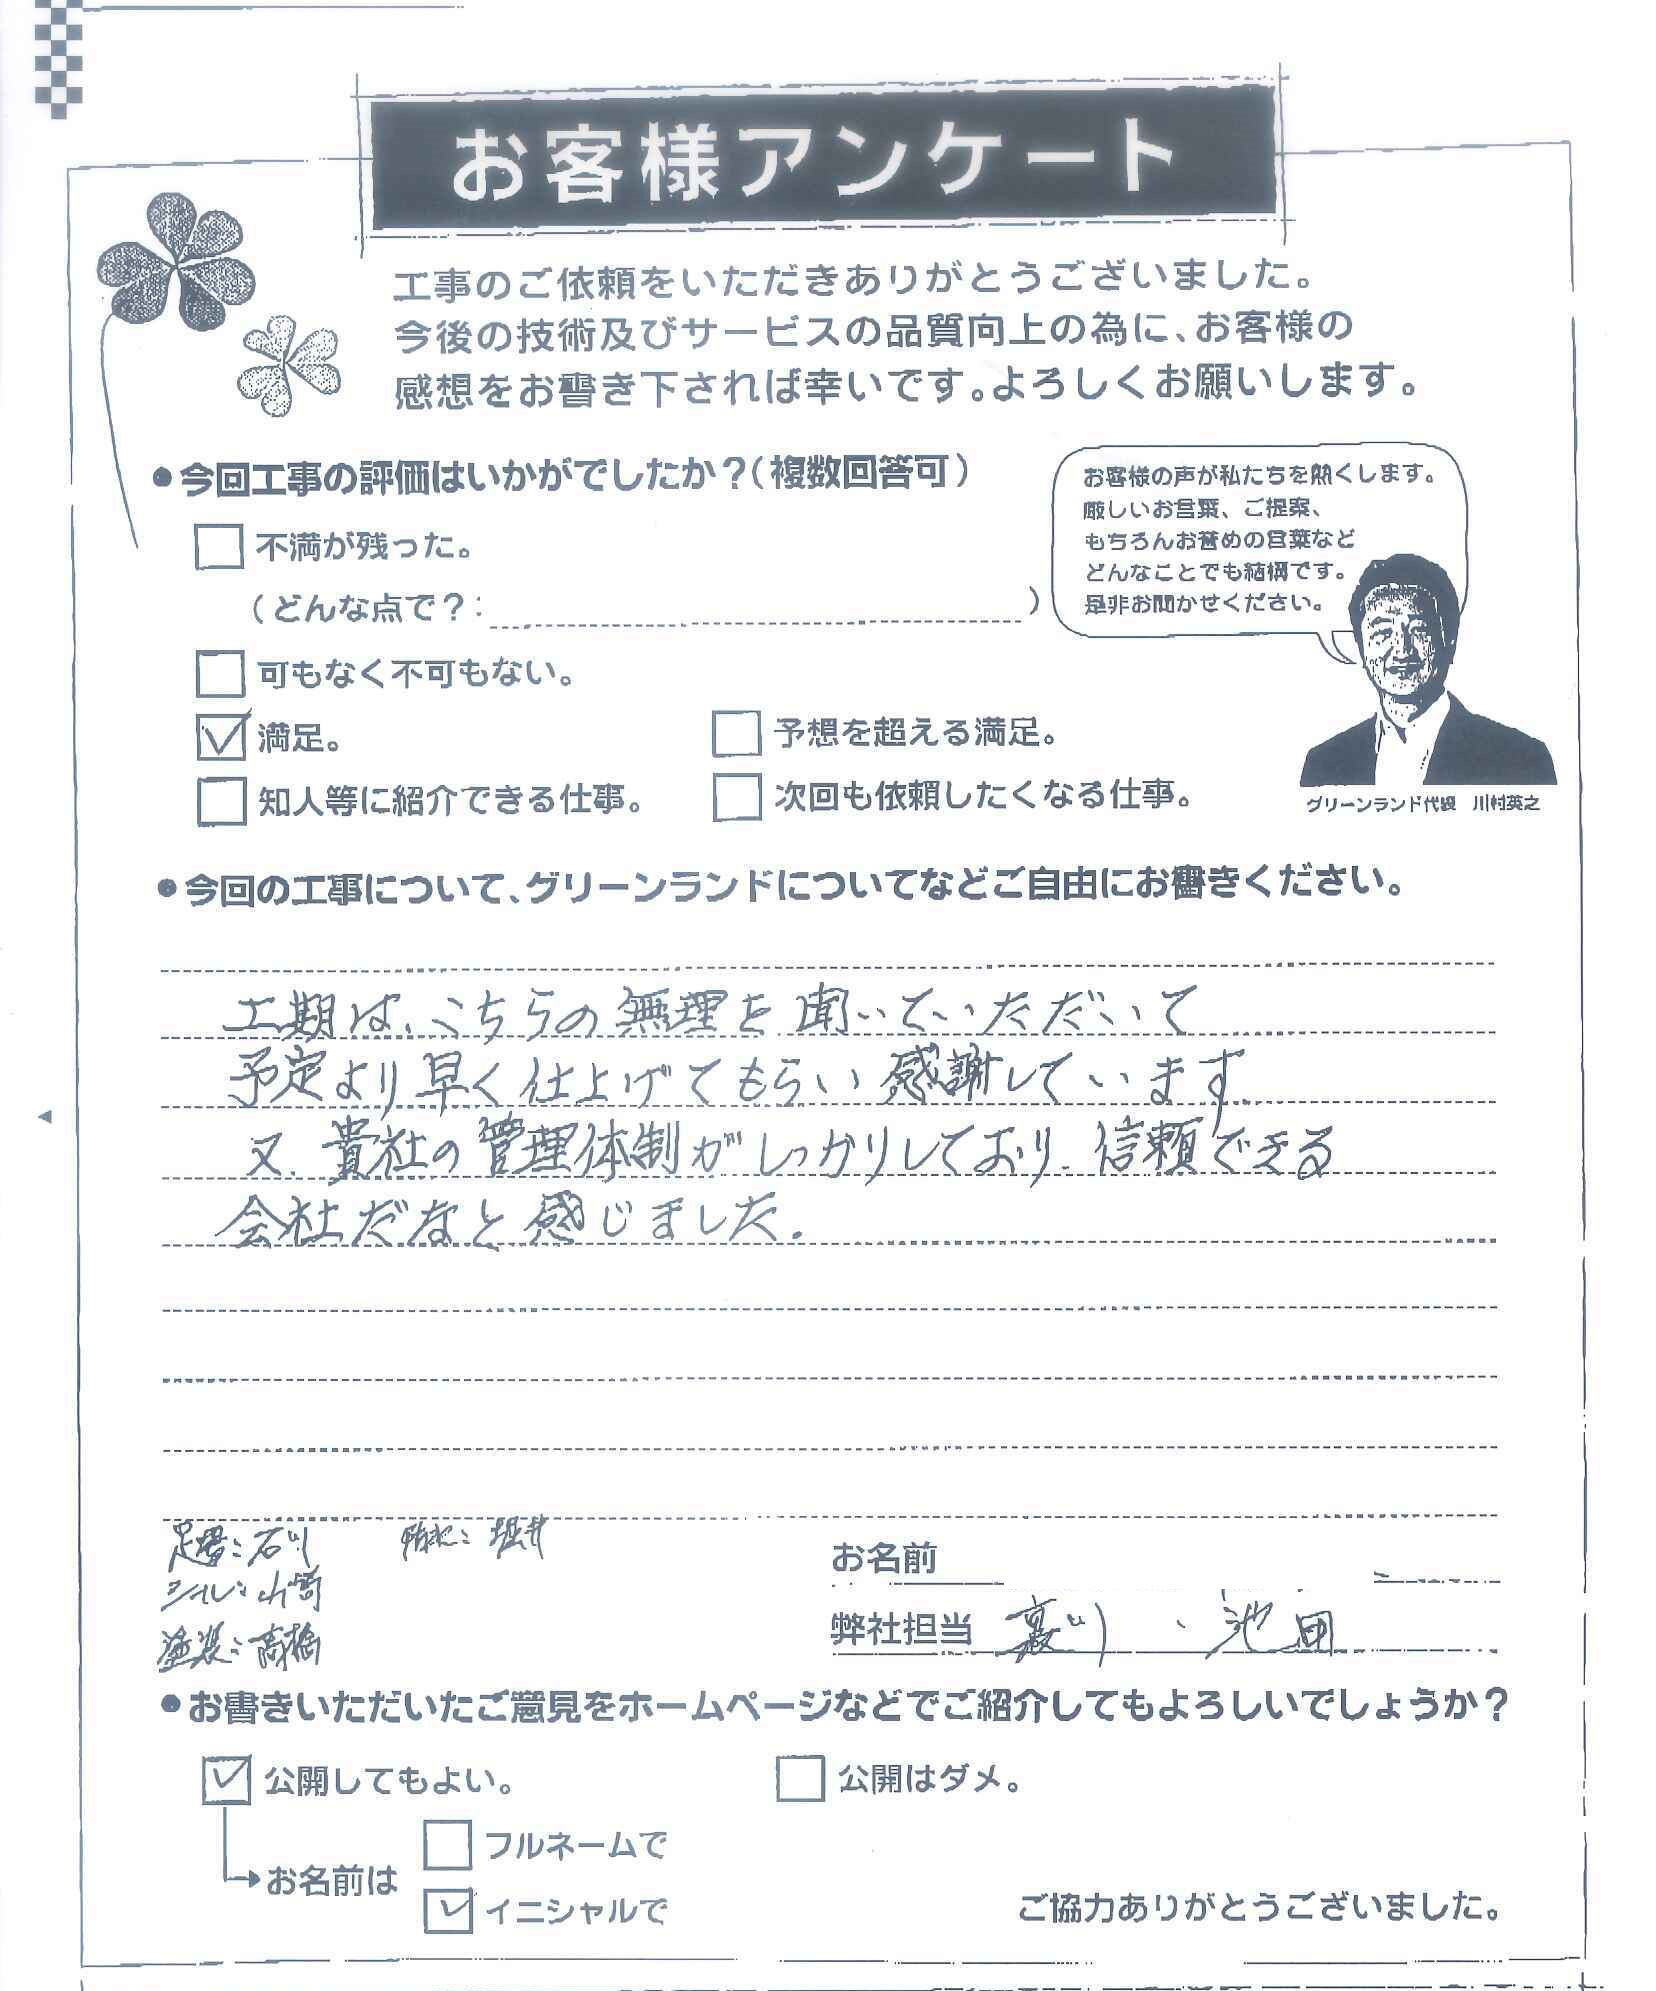 お客様アンケート
工事のご依頼をいただきありがとうございました。
今後の技術及びサービスの品質向上の為に、お客様の
感想をお書き下されば幸いです。よろしくお願いします。
●今回工事の評価はいかがでしたか？（複数回答可）
不満が残った。
（どんな点で？：　）
可もなく不可もない。
満足。
予想を超える満足。
知人等に紹介できる仕事。
次回も依頼したくなる仕事。
お客様の声が私たちを熱くします。
厳しいお言葉、ご提案、
もちろんお誉めの言葉など
どんなことでも結構です。
是非お聞かせください。
グリーンランド代表　川村英之
●今回の工事について、グリーンランドについてなどご自由にお書きください。
工期は、こちらの無理を聞いていただいて
予定より早く仕上げてもらい感謝しています。
又、貴社の管理体制がしっかりしており、信頼できる
会社だなと感じました。
足場：石川
防水：堀井
シール：山崎
塗装：高橋
お名前
弊社担当　・池田
●お書きいただいたご意見をホームページなどでご紹介してもよろしいでしょうか？
公開してもよい。
公開はダメ。
お名前は
フルネームで
イニシャルで
ご協力ありがとうございました。